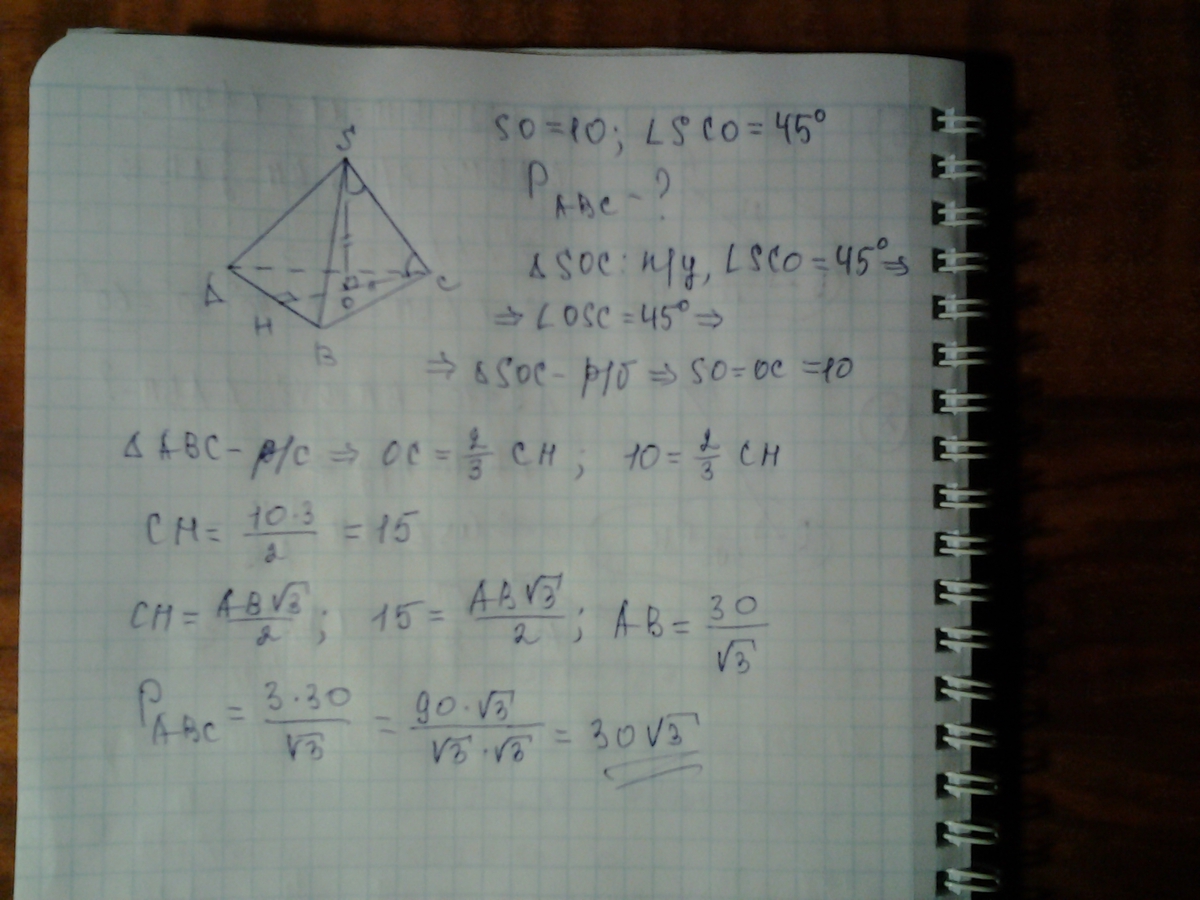 S
A
H
B
O
C
SO=10; ∠SCO=45°
P_ABC - ?
△SOC: п/у, ∠SCO=45° ⇒
⇒ ∠OSC=45° ⇒
⇒ △SOC - р/б ⇒ SO=OC=10
△ABC - р/с ⇒ OC = 2/3 CH; 10 = 2/3 CH
CH = 10·3/2 = 15
CH = AB√3/2; 15 = AB√3/2; AB = 30/√3
P_ABC = 3·30/√3 = 90·√3/√3·√3 = 30√3